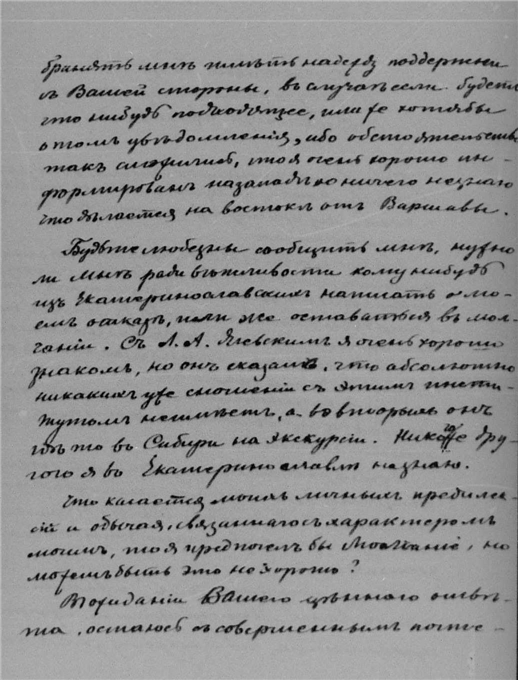 бранять мнѣ имѣть надежду поддержки
съ Вашей стороны, въ случаѣ если будетъ
что нибудь подходящее, или же хотябы
о томъ увѣдомленія, ибо обстоятельства
такъ сложились, что я очень хорошо ин-
формированъ на западѣ но ничего не знаю
что дѣлается на востокъ отъ Варшавы.
Будьте любезны сообщить мнѣ, нужно
ли мнѣ ради вѣжливости кому нибудь
изъ Екатеринославскихъ написать о мо-
емъ отказѣ, или же оставаться въ мол-
чаніи. Съ Л. А. Ячевскимъ я очень хорошо
знакомъ, но онъ сказалъ, что абсолютно
никакихъ уже сношеній съ этимъ инсти-
тутомъ не имѣетъ, а во вторыхъ онъ
гдѣ то въ Сибири на экскурсіи. Никого же дру-
гого я въ Екатеринославлѣ не знаю.
Что касается моихъ личныхъ
и обычая, связаннаго съ характеромъ
моимъ, то я предпочелъ бы молчаніе, но
можетъ быть это не хорошо?
Въ ожиданіи Вашего цѣннаго отвѣ-
та, остаюсь съ совершеннымъ почте-